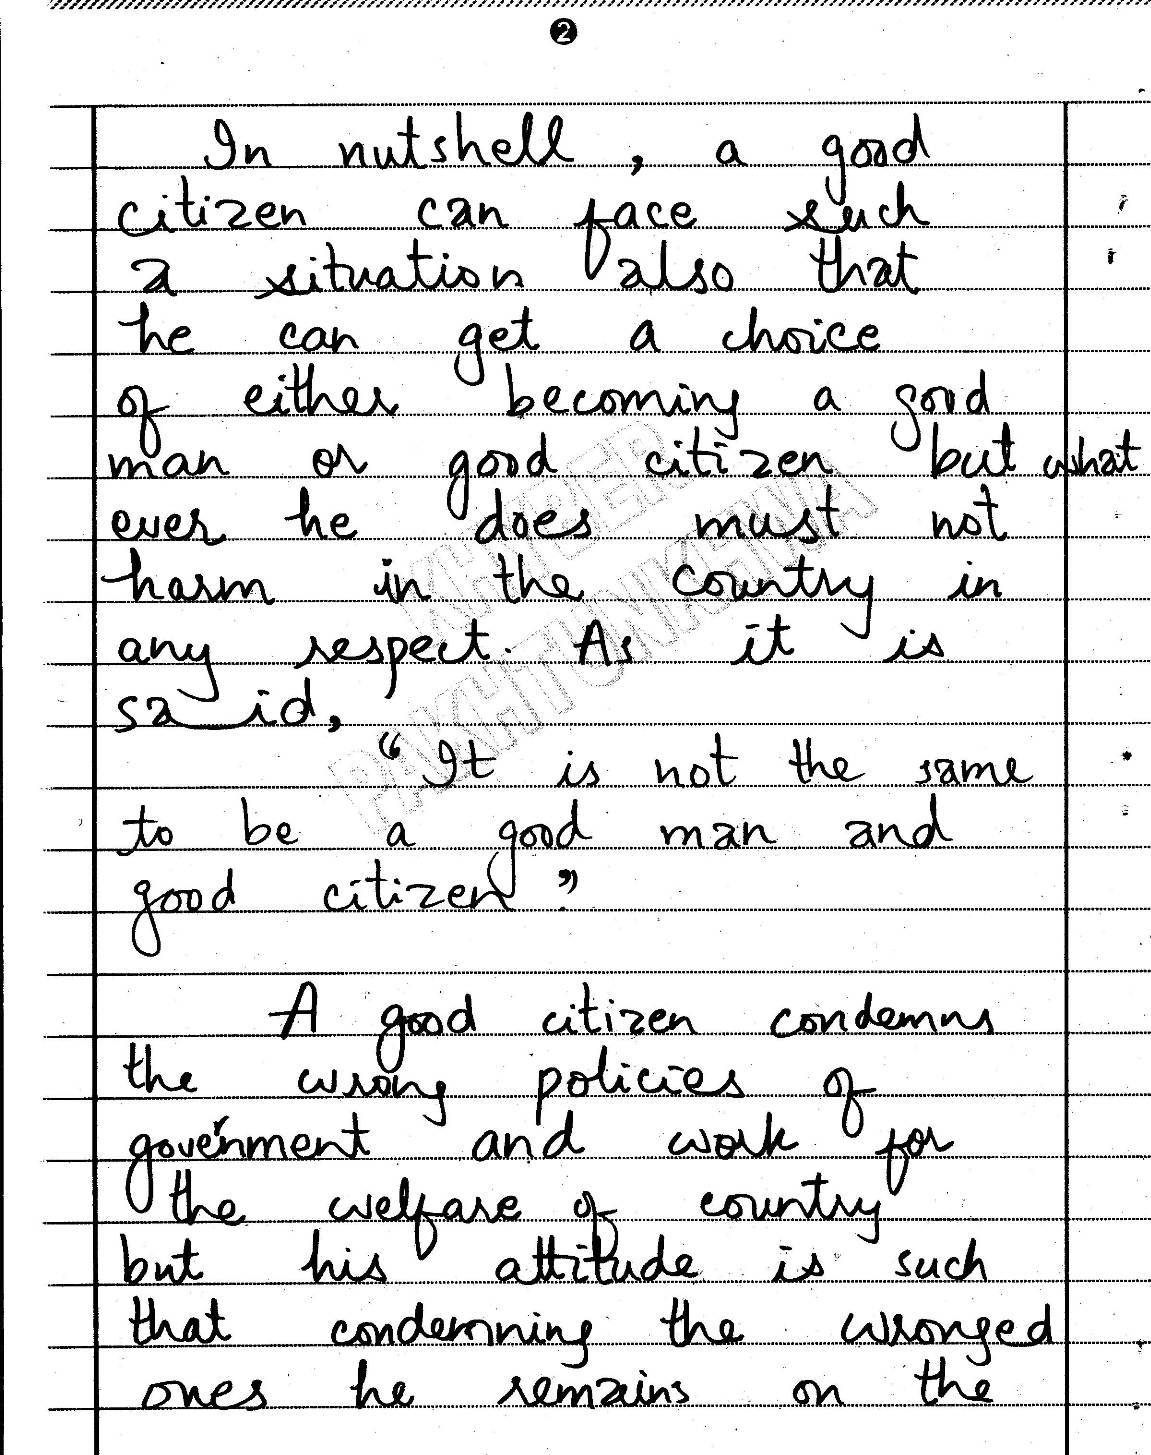 2
In nutshell, a good
citizen can face such
a situation also that
he can get a choice
of either becoming a good
man or good citizen but what
ever he does must not
harm in the country in
any respect. As it is
said,
"It is not the same
to be a good man and
good citizen"
A good citizen condemns
the wrong policies of
government and work for
the welfare of country
but his attitude is such
that condemning the wronged
ones he remains on the
KHYBER
PAKHTUNKHWA